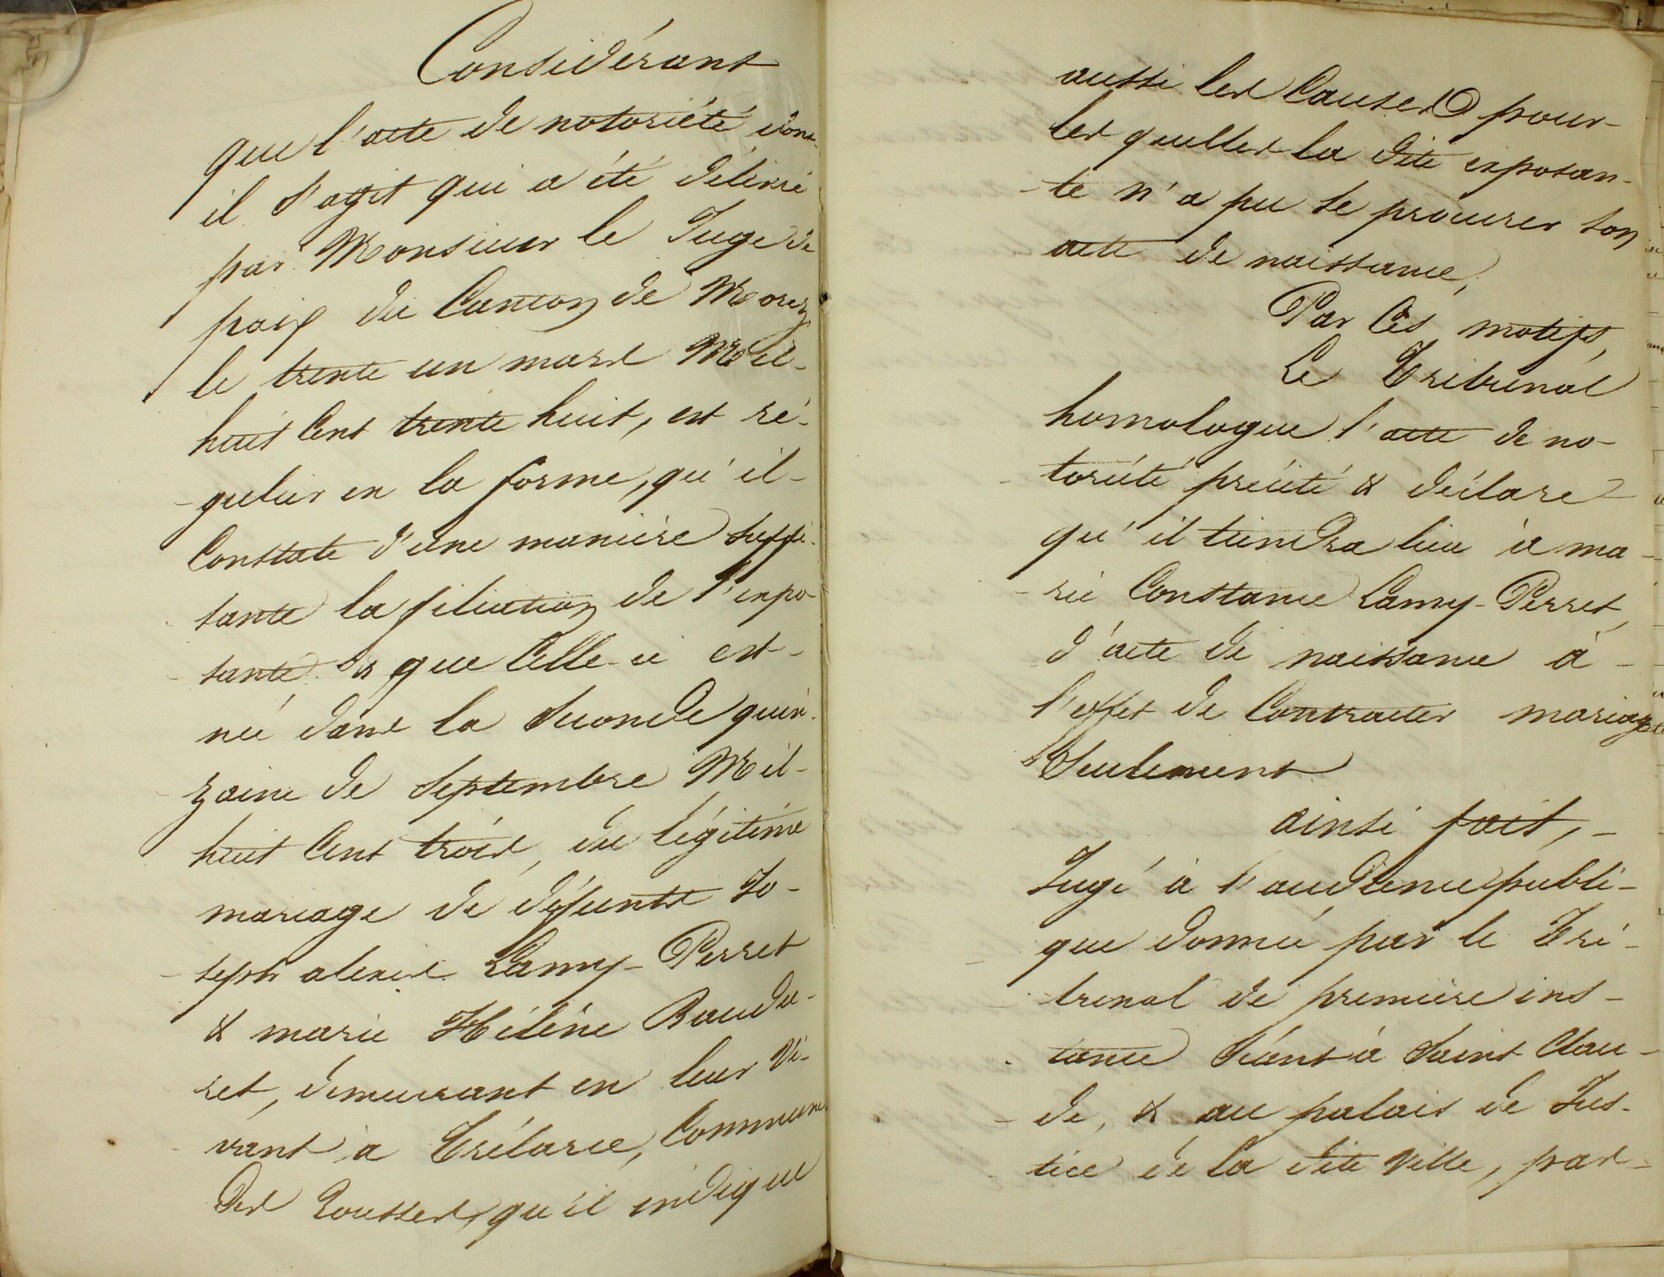 Considérant
que l'acte de notoriété dont
il s'agit qui a été délivré
par Monsieur le Juge de
paix du Canton de Morez
le trente un mars Mil-
huit Cent trente huit, est ré-
-gulier en la forme, qu'il-
Constate d'une manière suffi-
sante la filiation de l'expo-
sante & que Celle-ci est-
née dans la Seconde quin-
zaine de Septembre Mil-
huit Cent trois, du légitime
mariage de défunts Jo-
seph alexis Lamy-Perret
& marie Hélène Baudu-
ret, demeurant en leur vi-
vant à Trélarce, Commune
Des Rousses, qu'il indique
aussi les Causes pour-
les quelles la dite exposan-
-te n'a pu se procurer son
acte de naissance,
Par Ces motifs,
Le Tribunal
homologue l'acte de no-
-toriété précité & déclare
qu'il tiendra lieu à ma-
-rie Constance Lamy-Perret,
d'acte de naissance à-
l'effet de Contracter mariage
Seulement
ainsi fait,-
Jugé à l'audience publi-
que donnée par le Tri-
-bunal de première ins-
-tance Séant à Saint Clau-
-de, & au palais de Jus-
-tice de la dite Ville, par-